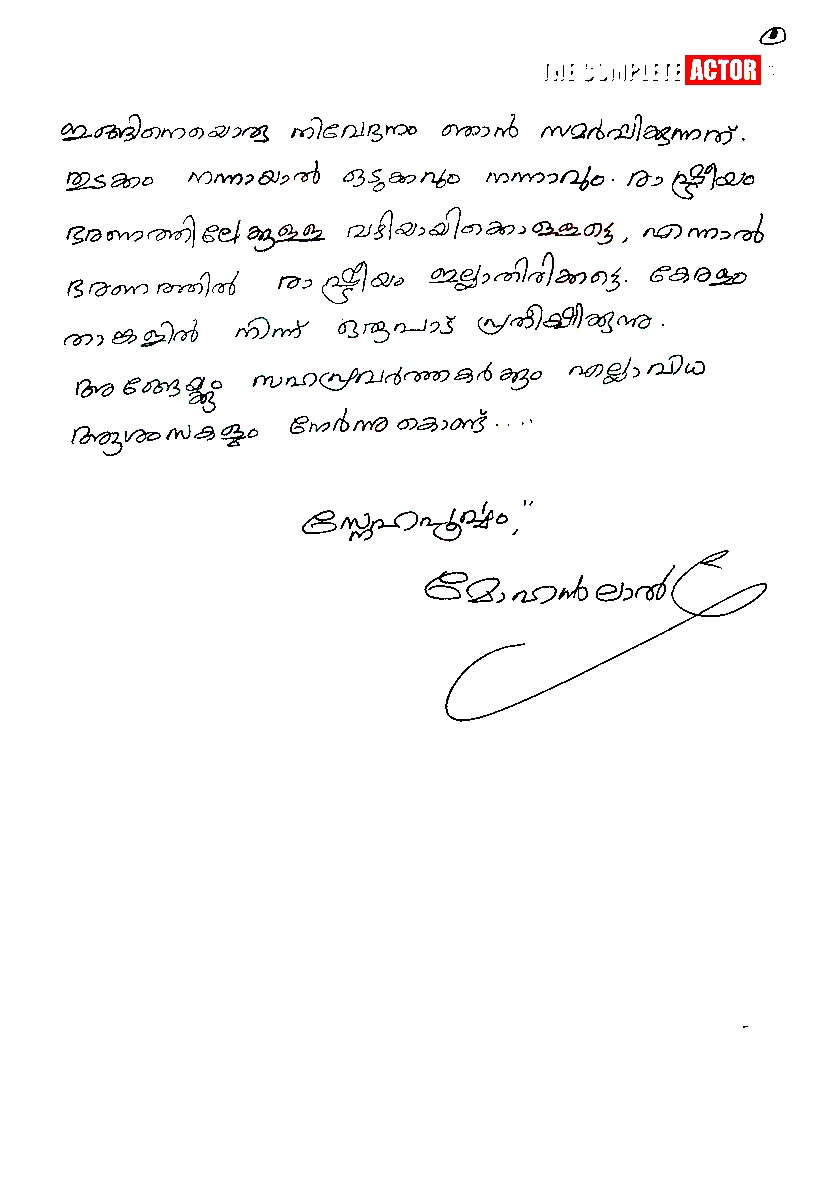 THE COMPLETE ACTOR
ഇങ്ങിനെയൊരു നിവേദനം ഞാൻ സമർപ്പിക്കുന്നത്.
തുടക്കം നന്നായാൽ ഒടുക്കവും നന്നാവും. രാഷ്ട്രീയം
ഭരണത്തിലേക്കുള്ള വഴിയായിക്കൊള്ളട്ടെ, എന്നാൽ
ഭരണത്തിൽ രാഷ്ട്രീയം ഇല്ലാതിരിക്കട്ടെ. കേരളം
താങ്കളിൽ നിന്ന് ഒരുപാട് പ്രതീക്ഷിക്കുന്നു.
അങ്ങേയ്ക്കും സഹപ്രവർത്തകർക്കും എല്ലാവിധ
ആശംസകളും നേർന്നുകൊണ്ട്....
സ്നേഹപൂർവ്വം,
മോഹൻലാൽ